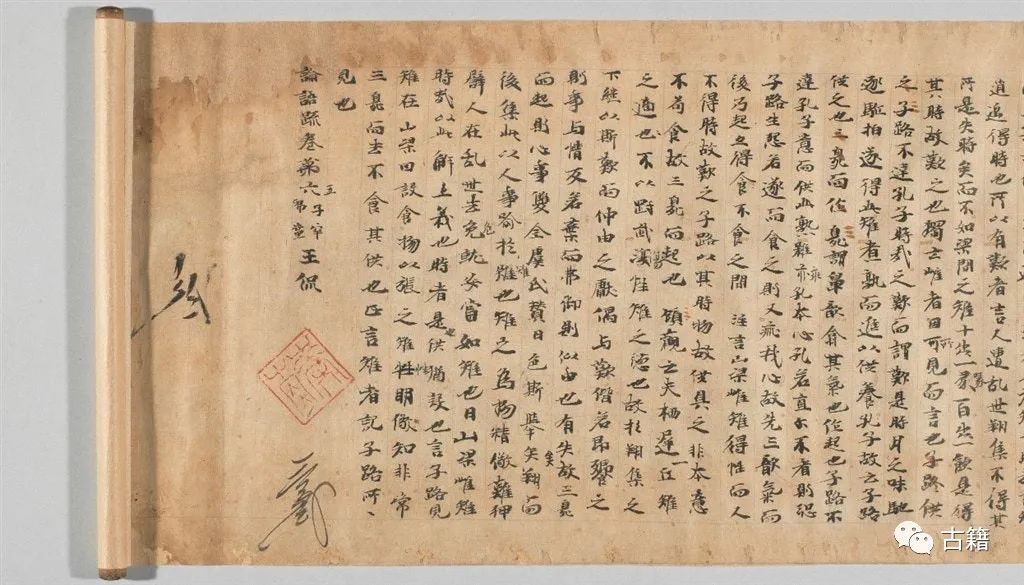 逍遥得時也所以有歎者言人遭乱世翔集不得其
所是失時矣而不如梁間之雉十步一啄百步一飲是得
其時故歎之也獨云雌者因所見而言也子路供
之子路不達孔子時哉之歎而謂歎是時月之味馳
逐駈拍遂得此雉者孰而進以供養孔子故云子路
供之也三臭而作臭謂鼻歆翕其氣也作起也子路不
達孔子意而供此熟雉乖孔子本心孔若直尒不者則恐
子路生怨若遂而食之則又乖我心故先三歆氣而
後乃起之得食不食之間 注言山梁雌雉得性而人
不得時故歎之子路以其時物故供具之非本意
不苟食故三臭而起也 顧歡云夫栖遅一丘雉
之適也不以剛武傷性雉之德也故於翔集之
下継以斯歎而仲由之獻偶与歎偕若即饗之
則事与情反若棄而弗御則似由也有失故三臭
而起則心事雙全虞氏賛曰色斯舉矣翔而
後集此以人事喩於雉也雉之為物精儆難狎
譬人在乱世去危就安當如雉也曰山梁雌雉
時哉以此解上義也時者是也供猶設也言子路見
雉在山梁因設食物以張之雉性明儆知非常
三臭而去不食其供也正言雉者記子路所〻
見也
論語疏卷第六 王侃
古籍